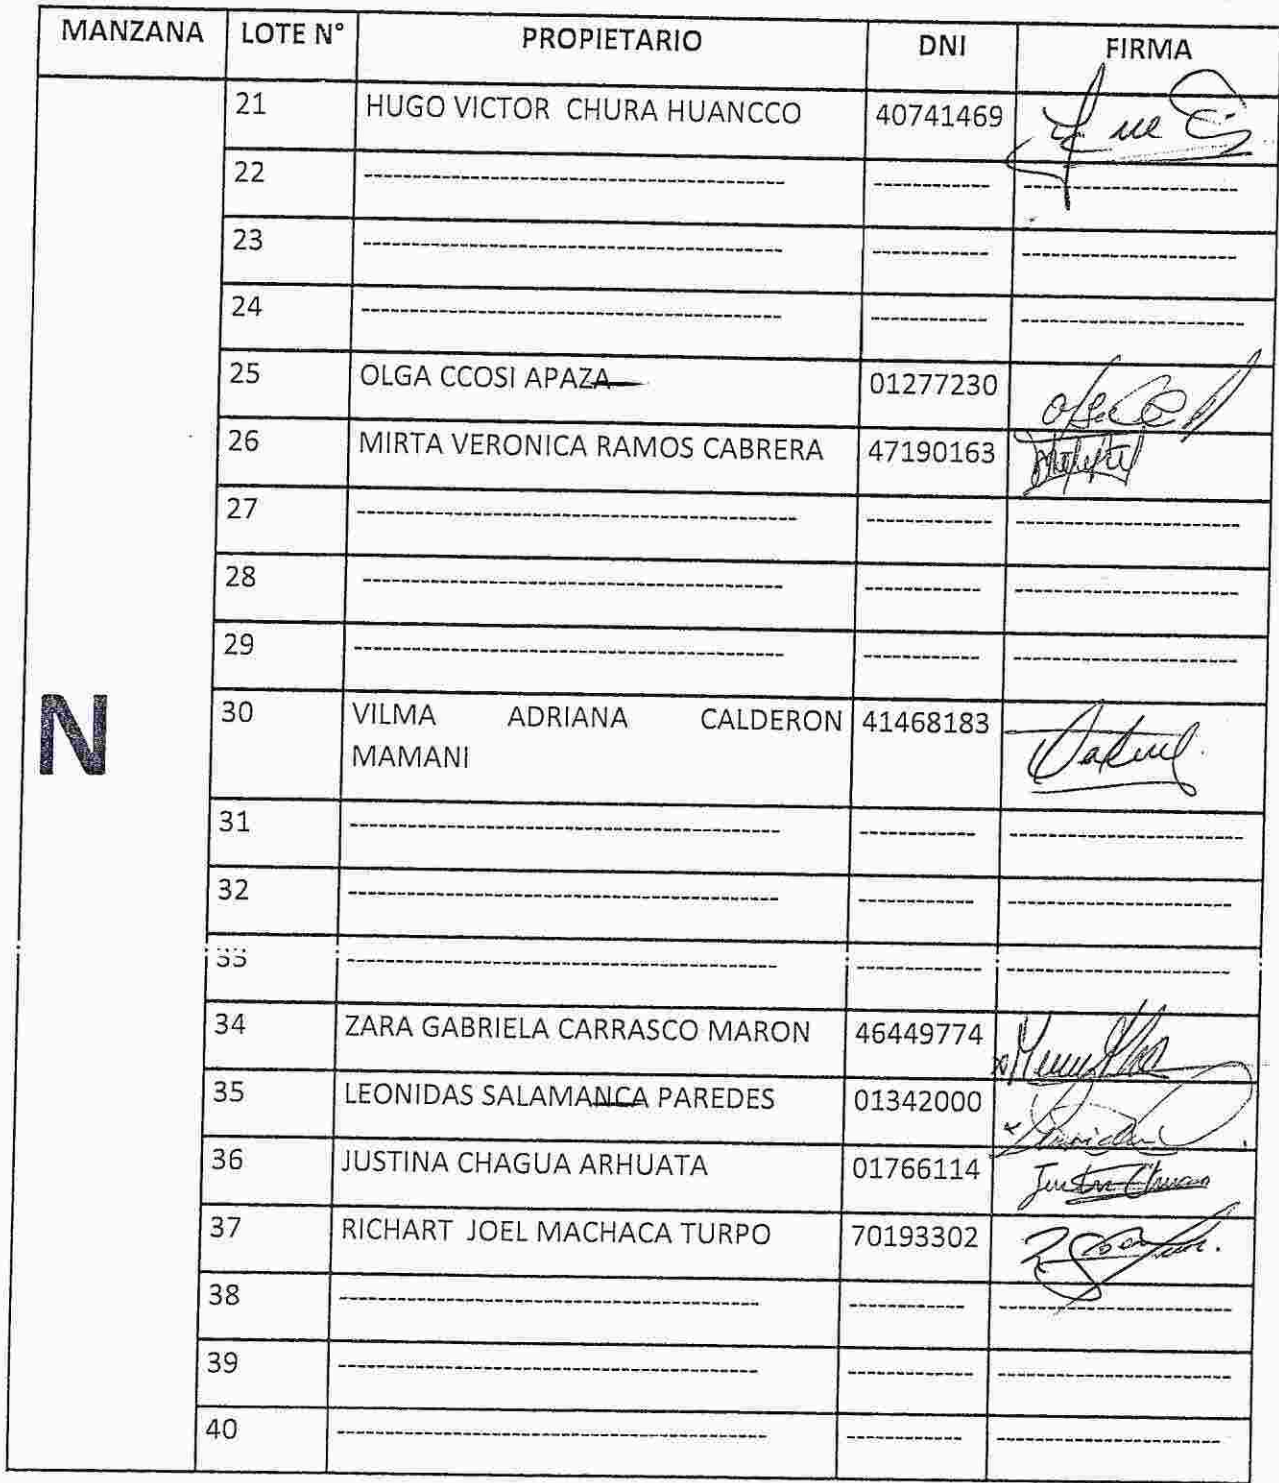 MANZANA LOTE N° PROPIETARIO DNI FIRMA
21 HUGO VICTOR CHURA HUANCCO 40741469
22 ---------- ---------- ----------
23 ---------- ---------- ----------
24 ---------- ---------- ----------
25 OLGA CCOSI APAZA 01277230
26 MIRTA VERONICA RAMOS CABRERA 47190163
27 ---------- ---------- ----------
28 ---------- ---------- ----------
29 ---------- ---------- ----------
N 30 VILMA ADRIANA CALDERON 41468183
MAMANI
31 ---------- ---------- ----------
32 ---------- ---------- ----------
33 ---------- ---------- ----------
34 ZARA GABRIELA CARRASCO MARON 46449774
35 LEONIDAS SALAMANCA PAREDES 01342000
36 JUSTINA CHAGUA ARHUATA 01766114
37 RICHART JOEL MACHACA TURPO 70193302
38 ---------- ---------- ----------
39 ---------- ---------- ----------
40 ---------- ---------- ----------